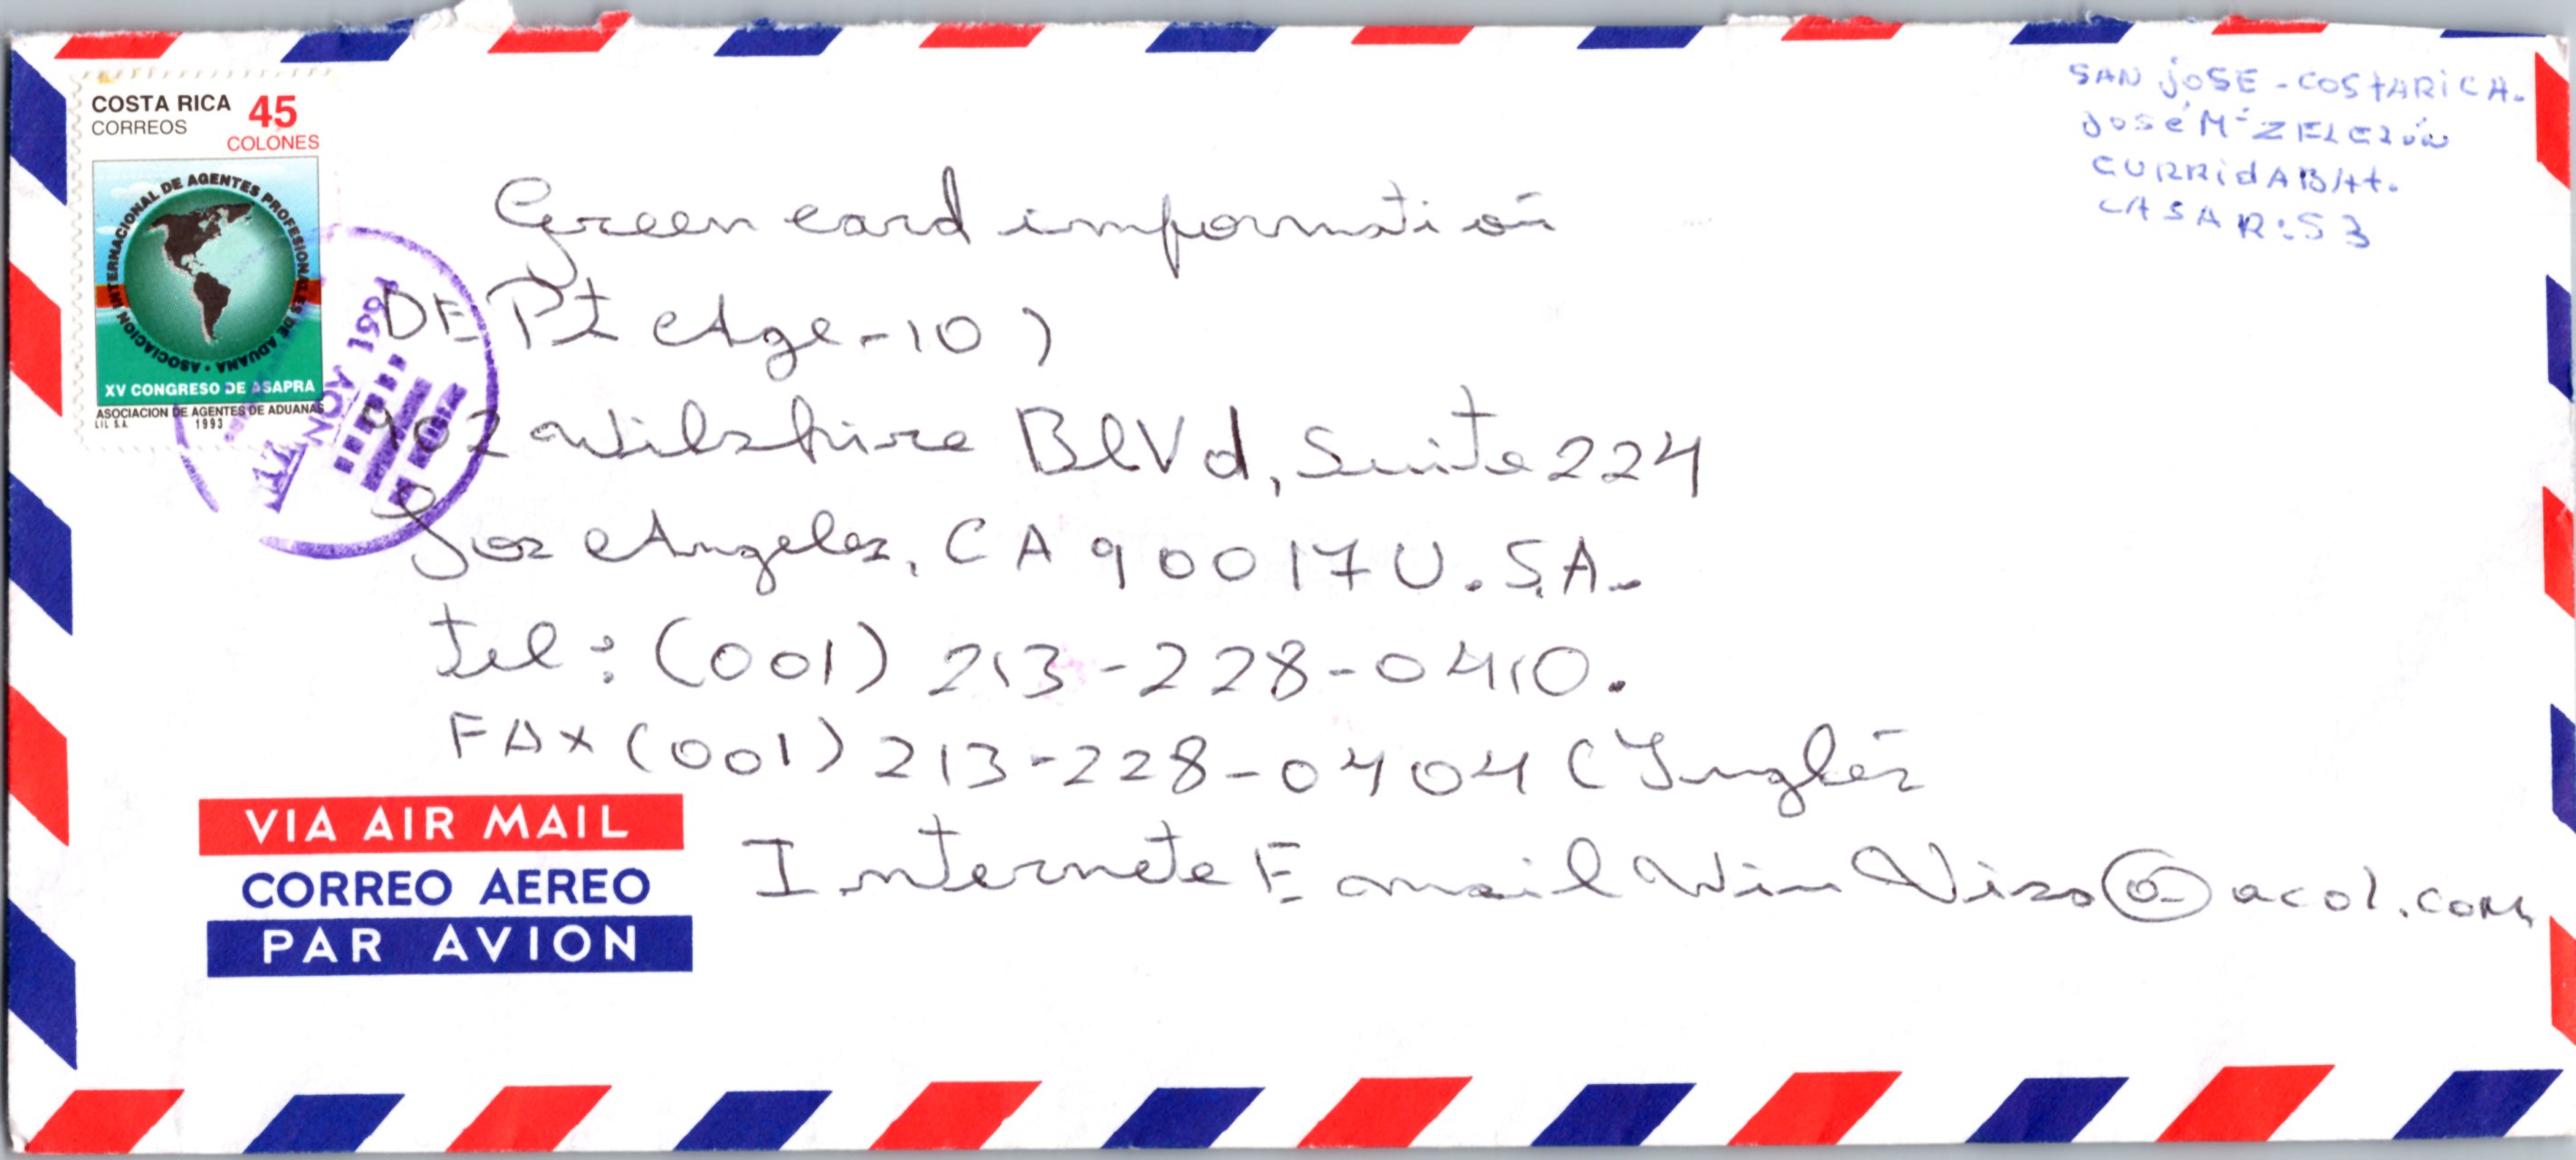 COSTA RICA 45
CORREOS
COLONES
ASOCIACION INTERNACIONAL DE AGENTES PROFESIONALES DE ADUANA •
XV CONGRESO DE ASAPRA
ASOCIACION DE AGENTES DE ADUANAS
LIL S.A. 1993
SAN JOSE - COSTARICA.
José Mª
CURRIDABAt.
CASA R:53
Green card information
DEPt Age-10)
902 Wilshire BlVd, Suite 224
Los Angeles, CA 90017 U.S.A.
tel: (001) 213-228-0410.
FAX (001) 213-228-0404 (Inglés
Internete E mail Win Viso @ acol.com
VIA AIR MAIL
CORREO AEREO
PAR AVION